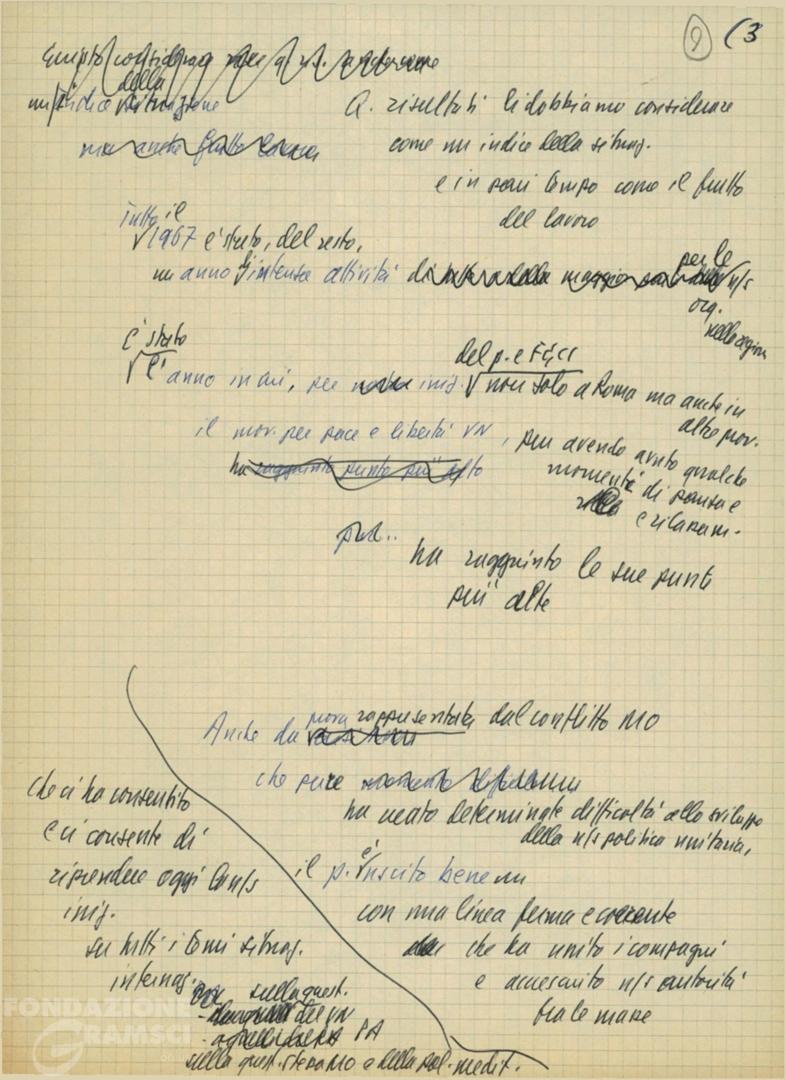 9 (3
un indice della situazione
Q. risultati li dobbiamo considerare
come un indice della situaz.
ma anche frutto
e in pari tempo come il frutto
del lavoro
tutto il
1967 è stato, del resto,
un anno intensa attività di per le n/s
org.
nella region
È stato
anno in cui, per iniz. del p. e FGCI non solo a Roma ma anche in
altre prov.
il mov. per pace e libertà VN, pur avendo avuto qualche
momento di pausa e
e rilassam.
ha raggiunto punto più alto
ha raggiunto le sue punte
più alte
Anche da prova rappresentata dal conflitto MO
che pure
ha creato determinate difficoltà allo sviluppo
della n/s politica unitaria,
il p. è riuscito bene
con una linea ferma e coerente
che ha unito i compagni
e accresciuto n/s autorità
fra le masse
che ci ha consentito
e ci consente di
riprendere oggi la n/s
iniz.
su tutti i temi situaz.
internaz.
sulla quest.
del VN
PA
sulla quest. stessa MO e della pol. medit.
FONDAZIONE
GRAMSCI